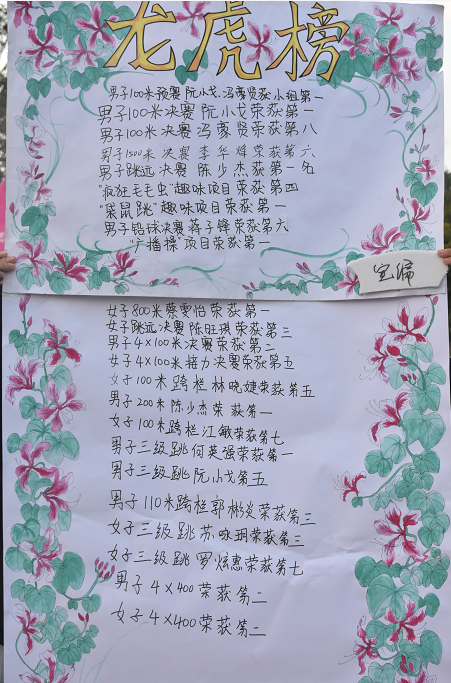 龙虎榜
男子100米预赛 阮小戈.冯豪贤获小组第一
男子100米决赛 阮小戈荣获第一
男子100米决赛 冯豪贤荣获第八
男子1500米决赛 李华烽荣获第六
男子跳远决赛 陈少杰获第一名
"疯狂毛毛虫"趣味项目荣获第四
"袋鼠跳"趣味项目荣获第一
男子铅球决赛蒋子锋荣获第六
"广播操"项目荣获第一
女子800米蔡雯怡荣获第一
女子跳远决赛陈旺琪荣获第三
男子4×100米决赛荣获第二
女子4×100米接力决赛荣获第五
女子100米跨栏林晓婕荣获第五
男子200米陈少杰荣获第一
女子100米跨栏江敏荣获第七
男子三级跳何英强荣获第一
男子三级跳阮小戈第五
男子110米跨栏郭彬炎荣获第三
女子三级跳苏咏玥荣获第三
女子三级跳罗炫惠荣获第七
男子4×400荣获第二
女子4×400荣获第二